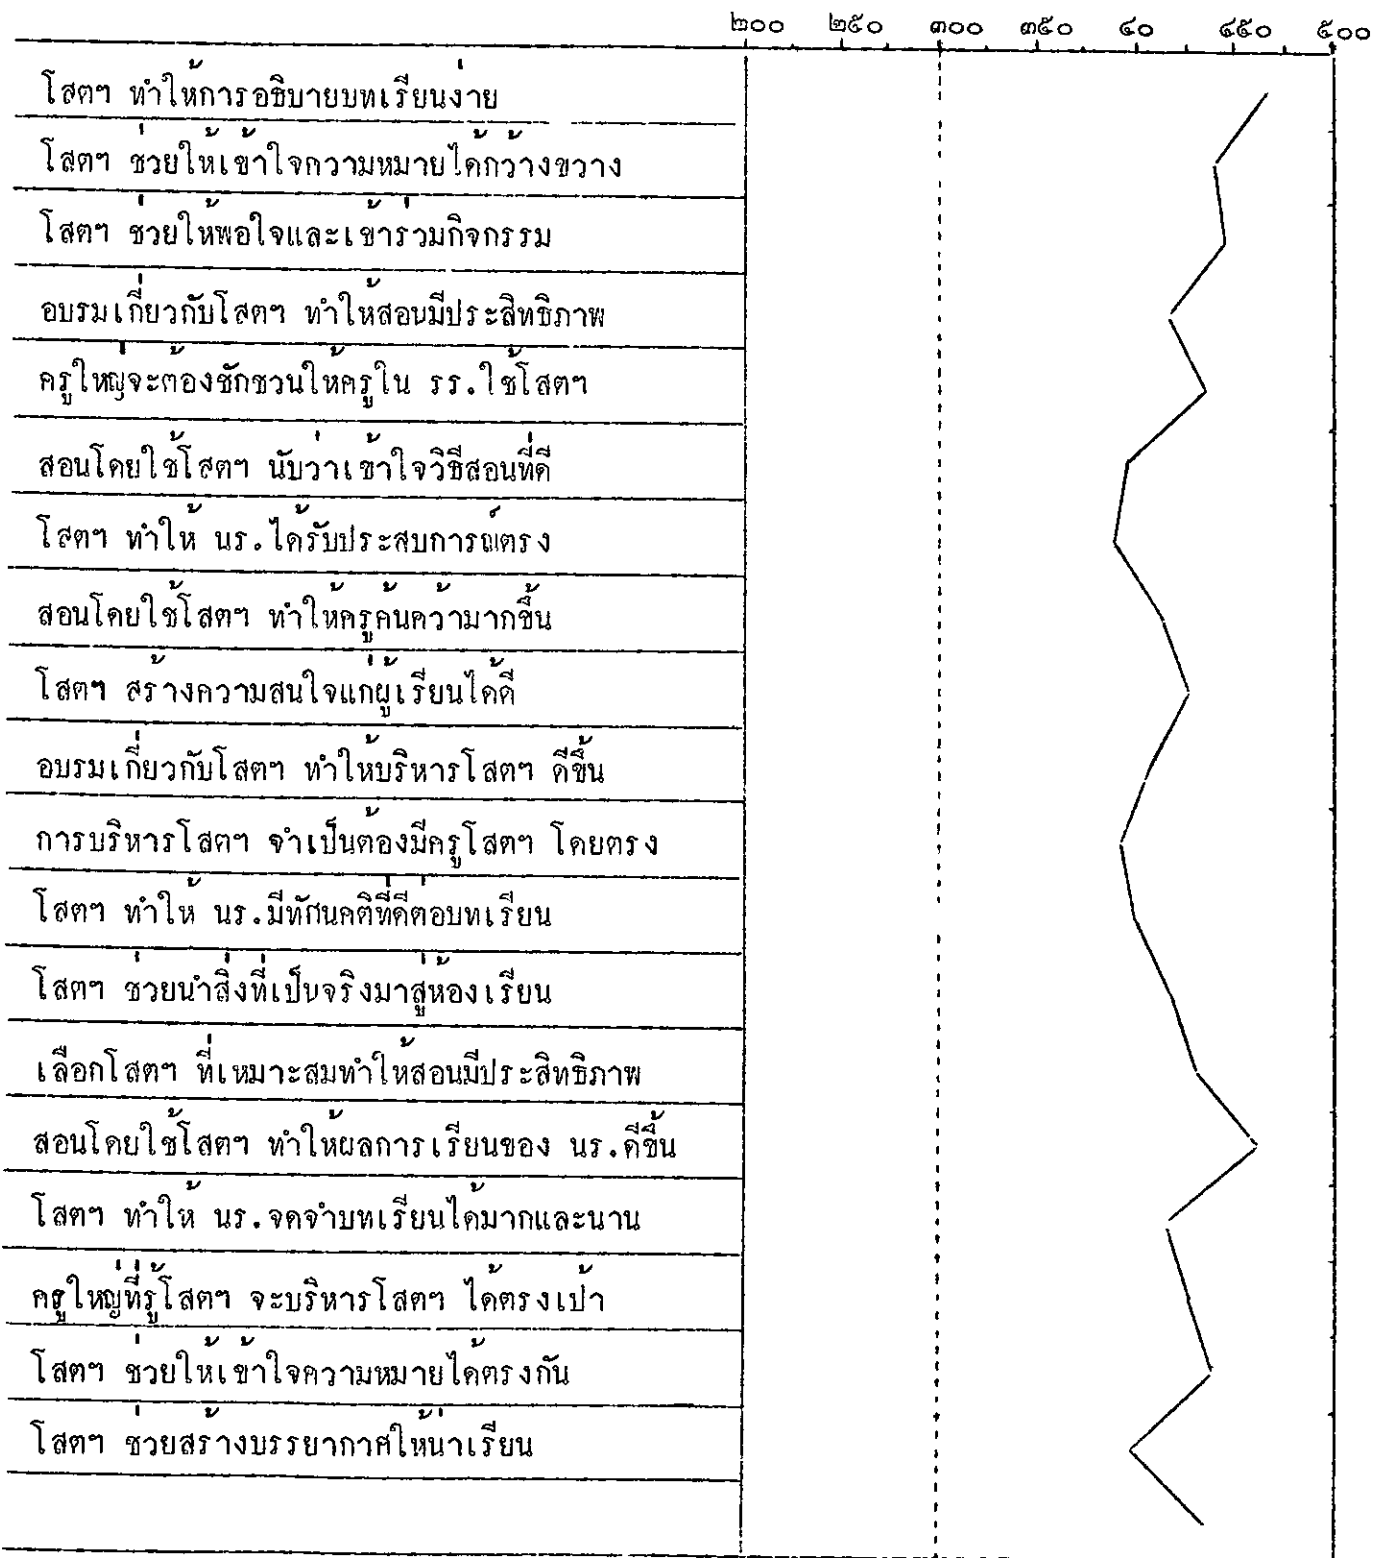 ๒๐๐ ๒๕๐ ๓๐๐ ๓๕๐ ๔๐ ๔๕๐ ๕๐๐
โสตฯ ทำให้การอธิบายบทเรียนง่าย
โสตฯ ช่วยให้เข้าใจความหมายได้กว้างขวาง
โสตฯ ช่วยให้พอใจและเข้าร่วมกิจกรรม
อบรมเกี่ยวกับโสตฯ ทำให้สอนมีประสิทธิภาพ
ครูใหญ่จะต้องชักชวนให้ครูใน รร.ใช้โสตฯ
สอนโดยใช้โสตฯ นับว่าเข้าใจวิธีสอนที่ดี
โสตฯ ทำให้ นร.ได้รับประสบการณ์ตรง
สอนโดยใช้โสตฯ ทำให้ครูค้นคว้ามากขึ้น
โสตฯ สร้างความสนใจแก่ผู้เรียนได้ดี
อบรมเกี่ยวกับโสตฯ ทำให้บริหารโสตฯ ดีขึ้น
การบริหารโสตฯ จำเป็นต้องมีครูโสตฯ โดยตรง
โสตฯ ทำให้ นร.มีทัศนคติที่ดีต่อบทเรียน
โสตฯ ช่วยนำสิ่งที่เป็นจริงมาสู่ห้องเรียน
เลือกโสตฯ ที่เหมาะสมทำให้สอนมีประสิทธิภาพ
สอนโดยใช้โสตฯ ทำให้ผลการเรียนของ นร.ดีขึ้น
โสตฯ ทำให้ นร.จดจำบทเรียนได้มากและนาน
ครูใหญ่ที่รู้โสตฯ จะบริหารโสตฯ ได้ตรงเป้า
โสตฯ ช่วยให้เข้าใจความหมายได้ตรงกัน
โสตฯ ช่วยสร้างบรรยากาศให้น่าเรียน